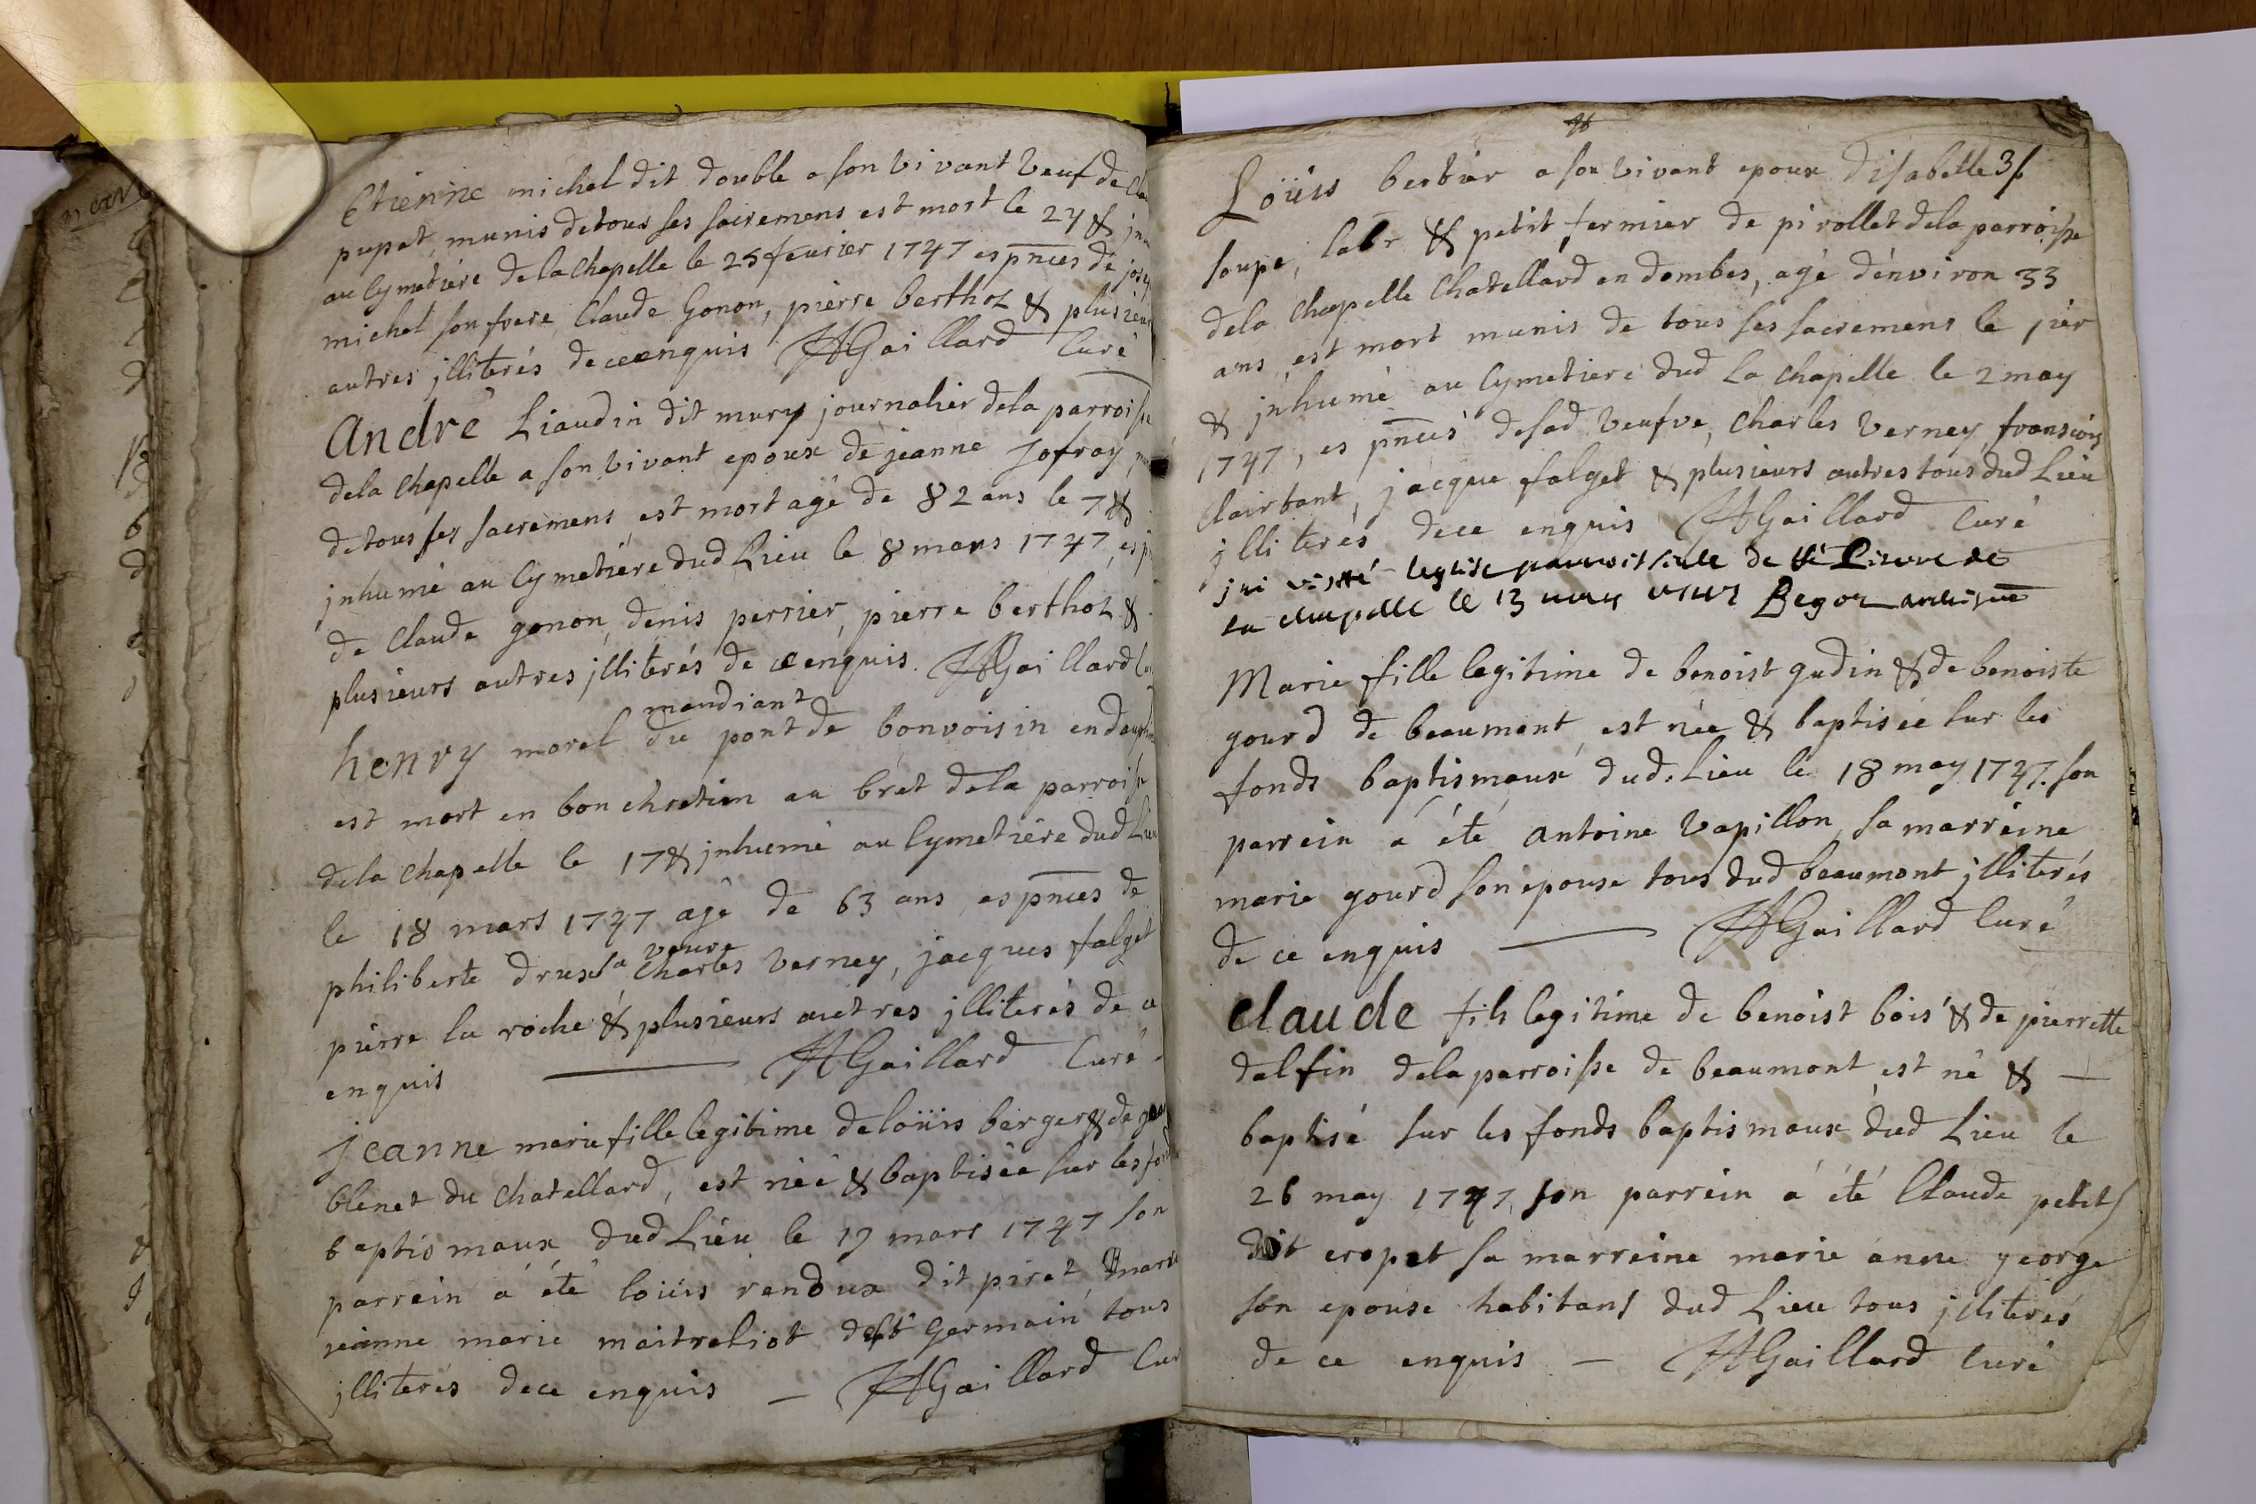 Etienne michel dit double a son vivant veuf de Cla
pupat, munis de tous ses sacremens est mort le 24 & jn
au Cymetiére de la Chapelle le 25 feurier 1747 es pnces de jos
michel son frere, Claude Gonon, pierre berthoz & plusieur
autres jlliterés de ce enquis JAGaillard Curé
André Liaudin dit mury journalier de la parroisse
de la chapelle a son vivant epoux de jeanne jofray, mu
de tous ses sacremens est mort agé de 82 ans le 7 &
jnhumé au Cymetiére dud Lieu le 8 mars 1747, es p
de Claude gonon, denis perrier, pierre berthoz &
plusieurs autres jlliterés de ce enquis. JAGaillard Cu
mandiant
henry morel du pont de bonvoisin en dauphin
est mort en bon chretien au bret de la parroisse
de la chapelle le 17 & jnhumé au Cymetiére dud Lieu
le 18 mars 1747 agé de 63 ans, es pnces de
veuve
philiberte drux sa Charles Verney, jacques falget
pierre la roche & plusieurs autres jlliterés de ce
enquis JAGaillard Curé
jeanne marie fille legitime de loüis berger & de jean
blenet du chatellard, est née & baptisée sur les fonds
baptismaux dud Lieu le 19 mars 1747 son
parrein a été loüis rendux dit pirat, marr
jeanne marie maitraliot de st germain tous
jlliterés de ce enquis — JAGaillard Cur
Loüis bertier a son vivant epoux d'isabelle
soupe, labr & petit fermier de pirollet de la parroisse
de la chapelle Chatellard en dombes, agé d'environ 33
ans, est mort munis de tous ses sacremens le jier
& jnhumé au Cymetiere dud La chapelle le 2 may
1747, es pnces de sad veufve, Charles Verney, fransois
Clairtant, jacque falget & plusieurs autres tous dud Lieu
jlliterés de ce enquis JAGaillard Curé
jai visité leglise parroissiale de
la chapelle le 13 may
Marie fille legitime de benoist gudin & de benoiste
gourd de beaumont, est née & baptisée sur les
fonds baptismaux dud. Lieu le 18 may 1747. son
parrein a été antoine vapillon, sa marreine
marie gourd son epouse tous dud beaumont jlliterés
de ce enquis — JAGaillard Curé
Claude fils legitime de benoist bois & de pierrette
dalfin de la parroisse de beaumont est né & —
baptisé sur les fonds baptismaux dud Lieu le
26 may 1747, son parrein a été Claude petit
dit cropet sa marreine marie anne george
son epouse habitans dud Lieu tous jlliterés
de ce enquis — JAGaillard Curé